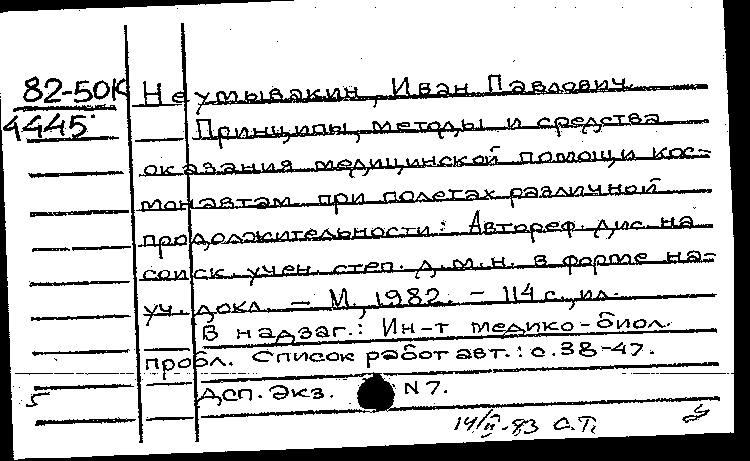 82-50К Неумывакин, Иван Павлович.
4445 Принципы, методы и средства
оказания медицинской помощи кос=
монавтам при полетах различной
продолжительности: Автореф. дис. на
соиск. учен. степ. д.м.н. в форме на=
уч. докл. – М., 1982. – 114 с., ил.
В надзаг.: Ин-т медико-биол.
пробл. Список работ авт.: с. 38-47.
5 Дсп. Экз. N 7.
14/II-83 С.Т.